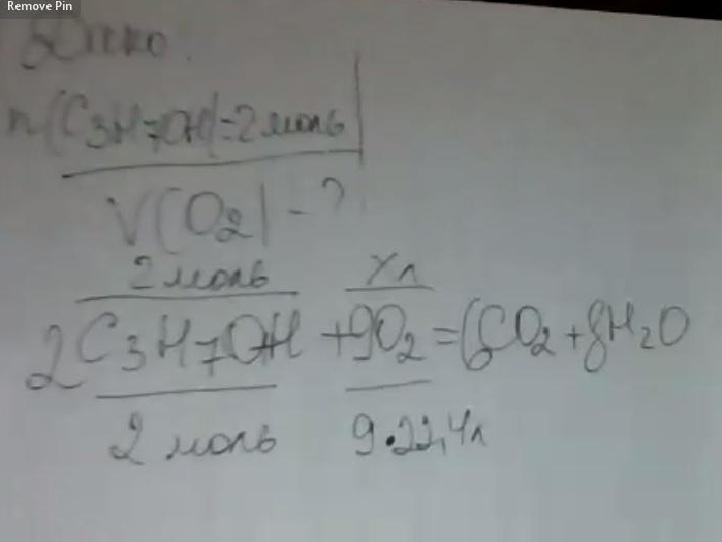 Remove Pin
Дано:
n(C3H7OH)=2моль
V(O2)-?
2моль Xл
2C3H7OH+9O2=6CO2+8H2O
2моль 9·22,4л